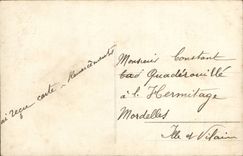 ai reçu carte. Remerciements
Monsieur Constant
à l'Hermitage
Mordelles
Ille et Vilain